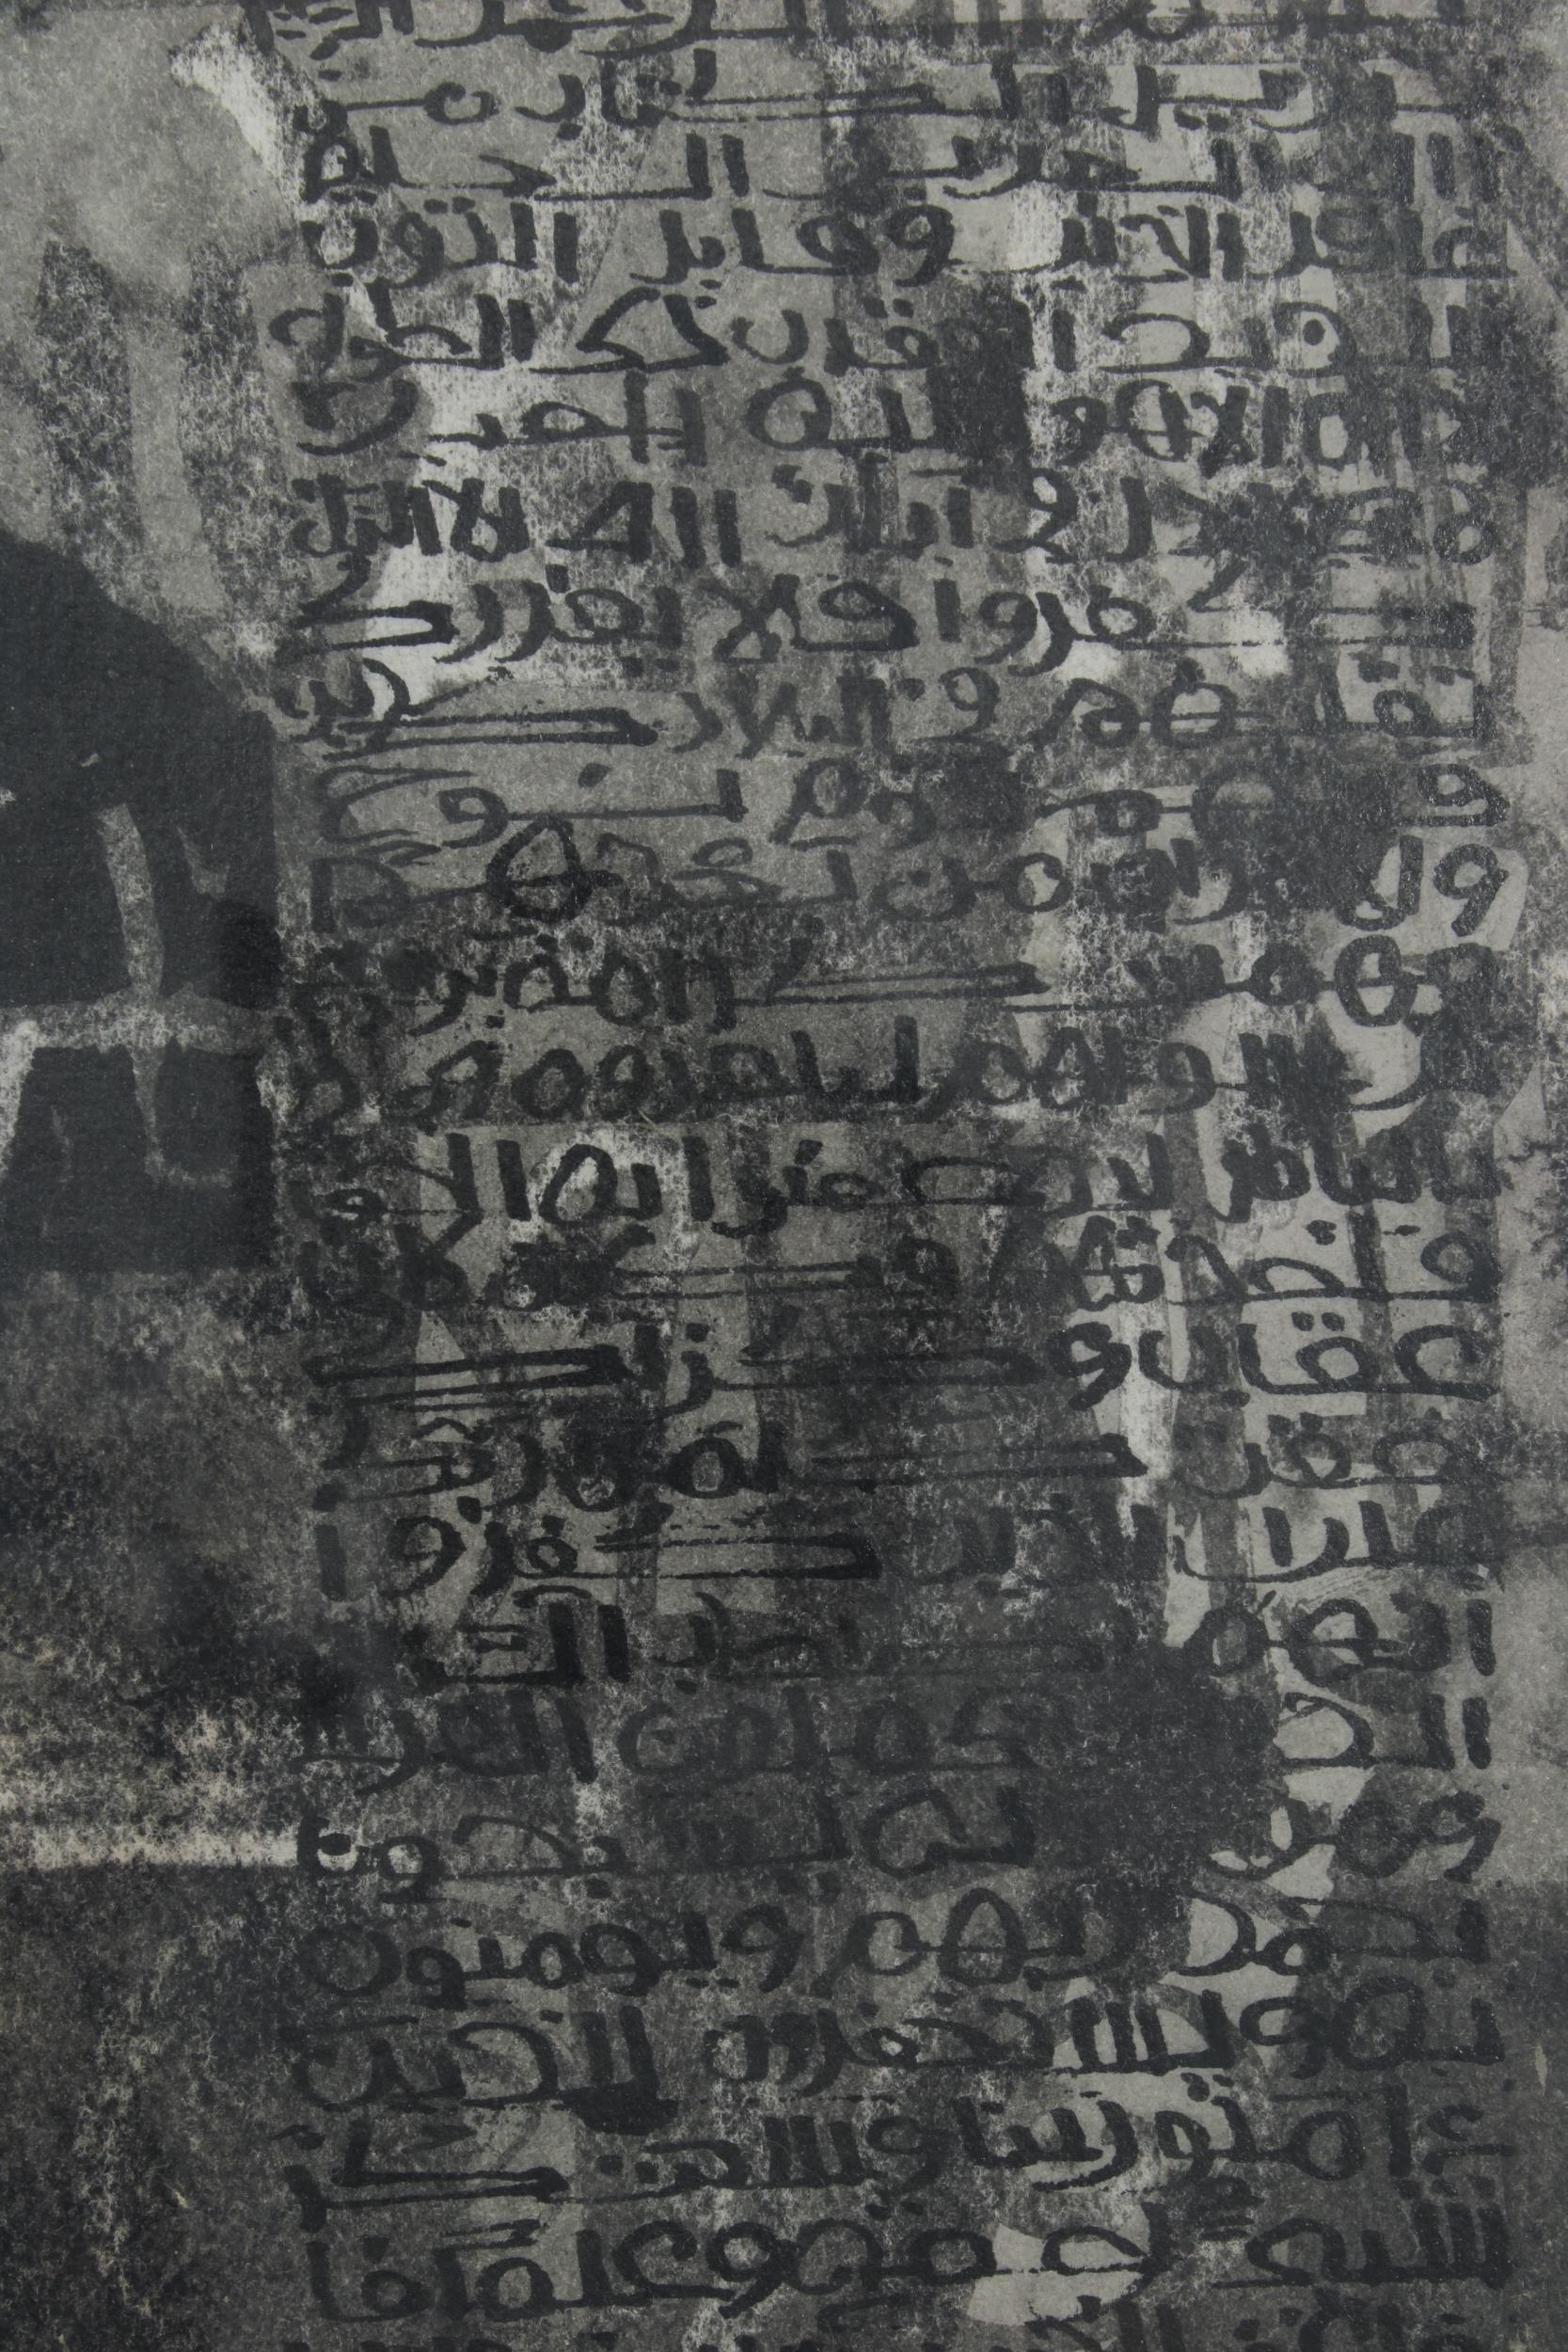 الرحمن
تنزيل الكتاب من
الله العزيز العليم
غافر الذنب وقابل التوب
العقاب ذي الطول
الاهو اليه المصير
في آيات الله الا الذين
كفروا فلا يغررك
تقلبهم في البلاد كذبت
قبلهم قوم نوح
والاحزاب من بعدهم
وهمت كل امة برسو
لهم لياخذوه وجا
بالباطل ليدحضوا به الحق
فاخذتهم فكيف كان
عقاب وكذلك
حقت كلمة ربك
على الذين كفروا
انهم اصحاب النار
الذين يحملون العرش
ومن حوله يسبحون
بحمد ربهم ويومنون
به ويستغفرون للذين
ءامنوا ربنا وسعت كل
شيء رحمة وعلما فا